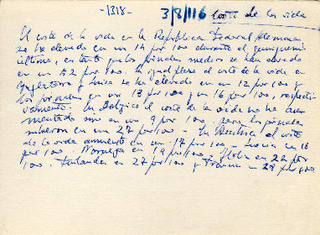 -1318-
3/8/116 coste de la vida
El coste de la vida en la República Federal Alemana
se ha elevado en un 14 por 100 durante el quinquenio
último, en tanto que los jornales medios se han elevado
en un 52 por 100. Igual fecha el coste de la vida en
Inglaterra y Suiza se ha elevado en un 12 por 100 y
los jornales en un 13 por 100 y 16 por 100, respecti-
vamente. En Bélgica el coste de la vida no ha au-
mentado sino en un 9 por 100, pero los jornales
subieron en un 27 por 100 - En Austria el coste
de la vida aumentó en un 17 por 100 - Suecia en 18
por 100. Noruega en 19 por 100 - Italia en 22 por
100. Finlandia en 27 por 100 y Francia en 29 por 100